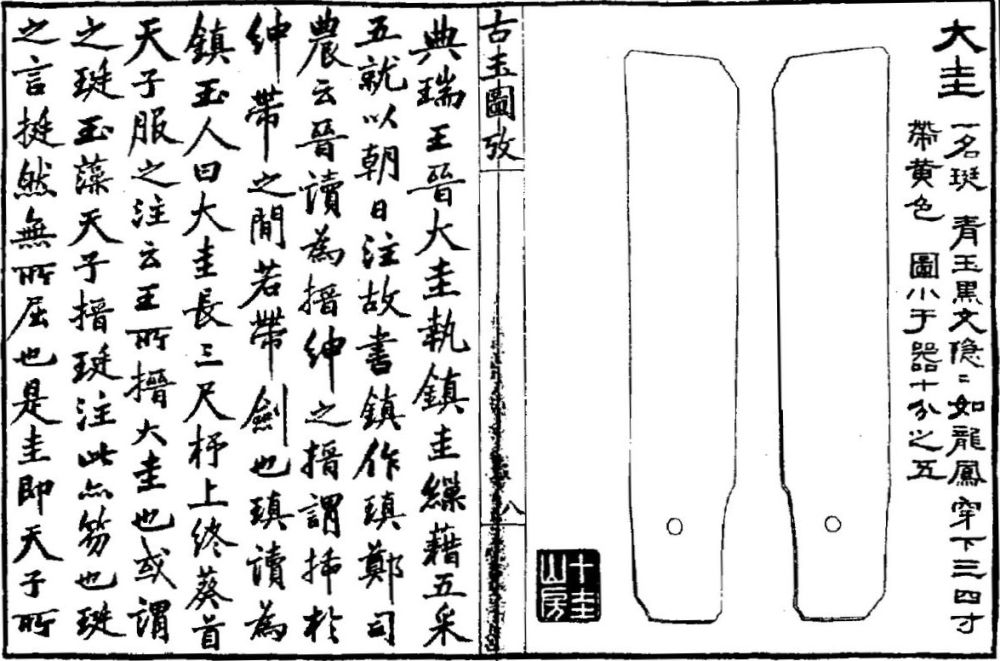 大圭
一名珽 青玉黑文隐〻如龍鳳穿下三四寸
帶黃色 圖小于器十分之五
十圭山房
古玉圖攷
八
典瑞王晉大圭執鎮圭繅藉五采
五就以朝日注故書鎮作瑱鄭司
農云晉讀為搢紳之搢謂揷於
紳帶之間若帶劍也瑱讀為
鎮玉人曰大圭長三尺杼上終葵首
天子服之注云王所搢大圭也或謂
之珽玉藻天子搢珽注此亦笏也珽
之言挺然無所屈也是圭即天子所